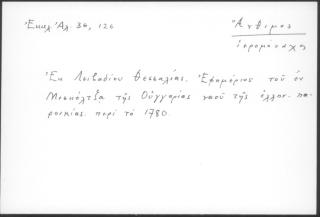 Ἐκκλ Ἀλ. 34, 126
Ἄνθιμος
ἱερομόναχος
Ἐκ Λειβαδίου Θεσσαλίας. Ἐφημέριος τοῦ ἐν
Μισκόλτζα τῆς Οὑγγαρίας ναοῦ τῆς ἑλλην. πα-
ροικίας. περὶ τὸ 1780.